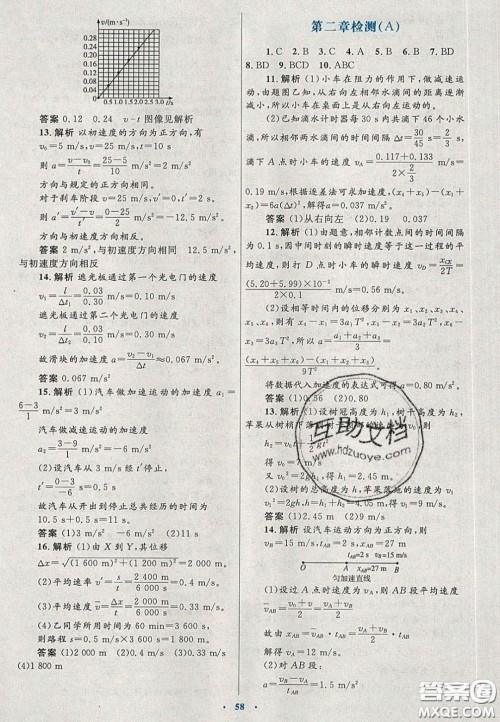 v/(m·s⁻¹)
0.28
0.24
0.20
0.16
0.12
0.08
0.04
0 0.5 1.0 1.5 2.0 2.5 3.0 t/s
答案 0.12 0.24 v-t 图像见解析
13. 解析 以初速度的方向为正方向,有
v₀=5 m/s,v=25 m/s,t=10 s
则 a=(v-v₀)/t=(25-5)/10 m/s²=2 m/s²
方向与规定的正方向相同。
对于刹车阶段v'₀=25 m/s,v'=0,t'=2 s
则 a'=(v'-v'₀)/t'=(0-25)/2 m/s²=-12.5 m/s²,
方向与初速度方向相反。
答案 2 m/s²,与初速度方向相同 12.5 m/s²,
与初速度方向相反
14. 解析 遮光板通过第一个光电门的速度
v₁=l/Δt₁=0.03/0.30 m/s=0.10 m/s
遮光板通过第二个光电门的速度
v₂=l/Δt₂=0.03/0.10 m/s=0.30 m/s
故滑块的加速度 a=(v₂-v₁)/Δt≈0.067 m/s²。
答案 0.067 m/s²
15. 解析 (1)汽车做加速运动的加速度 a₁=
(6-3)/1 m/s²=3 m/s²
汽车做减速运动的加速度
a₂=(3-9)/1 m/s²=-6 m/s²
(2)设汽车从 11 s 末经 t'停止。
故汽车从开出到停止总共经历的时间为
10.5 s+0.5 s=11 s。
答案 (1)3 m/s² -6 m/s² (2)11 s
16. 解析 (1)由 X 到 Y,其位移
Δx=√((1 600 m)²+(1 200 m)²)=2 000 m
(2)平均速率v=s/t=2 400 m/6 000 s=0.4 m/s
(3)平均速度v=Δx/t=2 000 m/6 000 s=0.33 m/s
(4)乙同学所用时间为 60 min=3 600 s,
则路程 s=3 600 s×0.5 m/s=1 800 m
答案 (1)2 000 m (2)0.4 m/s (3)0.33 m/s
(4)1 800 m
第二章检测(A)
1. C 2. B 3. A 4. B 5. B 6. BD 7. BD
8. BD 9. BD 10. ABC
11. 解析 (1)小车在阻力的作用下,做减速运
动,由题图已知,从右向左相邻水滴间的距离逐渐
减小,所以小车在桌面上是从右向左运动。
(2)已知滴水计时器每 30 s 内共滴下 46 个小水
滴,所以相邻两水滴间的时间间隔Δt=30/45 s=2/3 s,
滴下 A 点时小车的速度 v_A=(0.117+0.133)/(2×2/3) m/s=
0.19 m/s,根据逐差法可求加速度,(x₄+x₅)-(x₁+
x₂)=6a(Δt)²,解得 a=0.037 m/s²。
答案 (1)从右向左 (2)0.19 0.037
12. 解析 (1)由题意,相邻计数点间的时间间隔
为 0.1 s,某时刻的瞬时速度等于这一过程的平
均速度,则打 D 点时小车的瞬时速度 v_D=x_CE/2T=
(5.20+5.99)×10⁻²/(2×0.1) m/s=0.56 m/s。
(2)设相等时间内的位移分别为 x₁、x₂、x₃、x₄、x₅、
x₆,有 x₄-x₁=3a₁T²,x₅-x₂=3a₂T²,x₆-x₃=
3a₃T²,所以 a=(a₁+a₂+a₃)/3=
(x₄+x₅+x₆-x₁-x₂-x₃)/9T²
将数据代入加速度的表达式可得 a=0.80 m/s²。
答案 (1)0.56 (2)0.80
13. 解析 (1)设树冠高度为 h₁,树干高度为 h₂,
h₂=v₀t+½gt²
得 v₀=7 m/s
v₀²=2gh₁,得 h₁=2.45 m。
(2)设树的总高度为 h,苹果落地的速度为 v,
v²=2gh,h=h₁+h₂,得 v=9 m/s。
答案 (1)2.45 m (2)9 m/s
14. 解析 设汽车运动方向为正方向,则
v_B=15 m/s,t_AB=2 s,x_AB=27 m
t_AB=2 s v_B=15 m/s
O A x_AB=27 m B
匀加速直线
(1)设过 A 点时速度为 v_A,则 AB 段平均速度
v_AB=(v_A+v_B)/2
故由 x=vt 得 x_AB=v_AB·t_AB=(v_A+v_B)/2·t_AB
解得 v_A=12 m/s。
(2)对 AB 段:a=(v_B-v_A)/t_AB=1.5 m/s²
58
互助文档
www.hdzuoye.com
答案圈
MXQE.COM